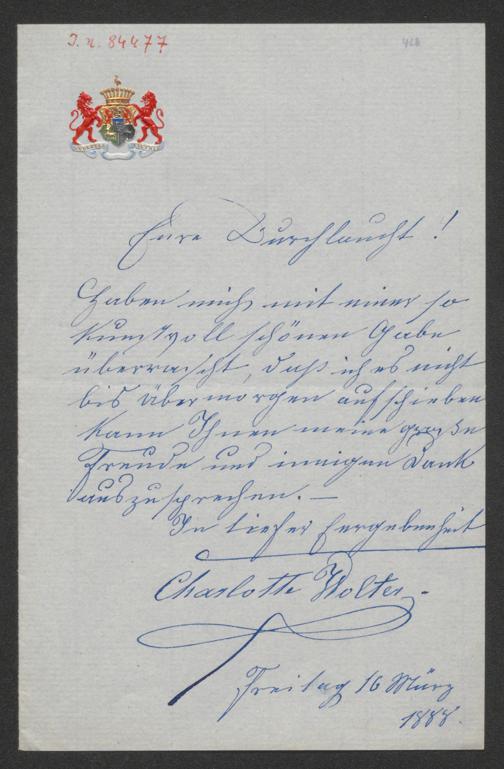 I. N. 84477
Eure Durchlaucht!
Haben mich mit einer so
kunstvoll schönen Gabe
überrascht, daß ich es nicht
bis übermorgen aufschieben
kann Ihnen meine große
Freude und innigen Dank
auszusprechen. —
In tiefer Ergebenheit
Charlotte Wolter.
Freitag 16 März
1888.